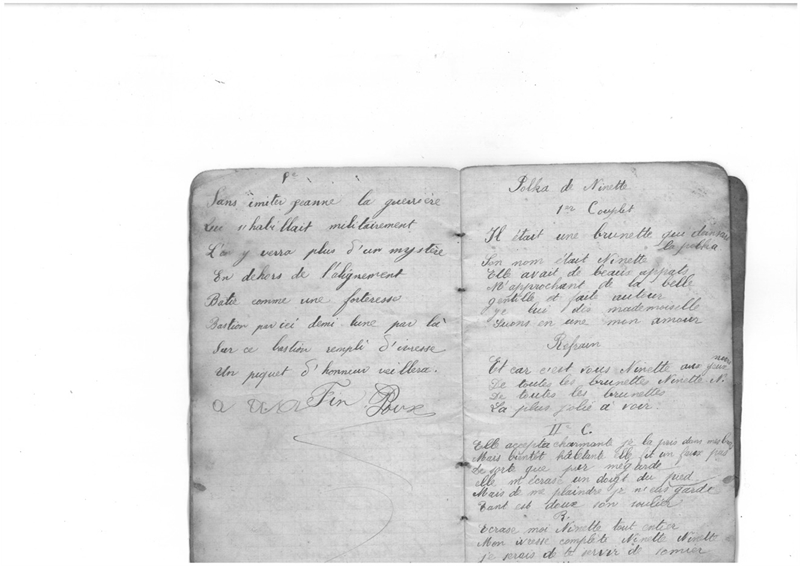 Sans imiter jeanne la guerrière
Qui s'habillait militairement
L'on y verra plus d'un mystère
En dehors de l'alignement
Batie comme une forteresse
Bastion par ici demi-lune par là
Sur ce bastion rempli d'ivresse
Un piquet d'honneur veillera.
Fin
Polka de Ninette
1er Couplet
Il était une brunette qui
la polka
Son nom était Ninette
Elle avait de beaux appats
M'approchant de la belle
gentille et faite
je lui dis mademoiselle
en une mon amour
Refrain
Et car c'est vous Ninette aux yeux
De toutes les brunettes Ninette N.
De toutes les brunettes
La plus jolie à voir.
II e C.
Elle accepta charmante je la pris dans mes bras
Mais bientôt elle fit un faux pas
De sorte que par mégarde
elle m'écrase un doigt du pied
Mais de me plaindre je n'eus garde
tant est doux son soulier
R.
Ecrase moi Ninette tout entier
Mon ivresse complète Ninette Ninette
je serais de te servir de